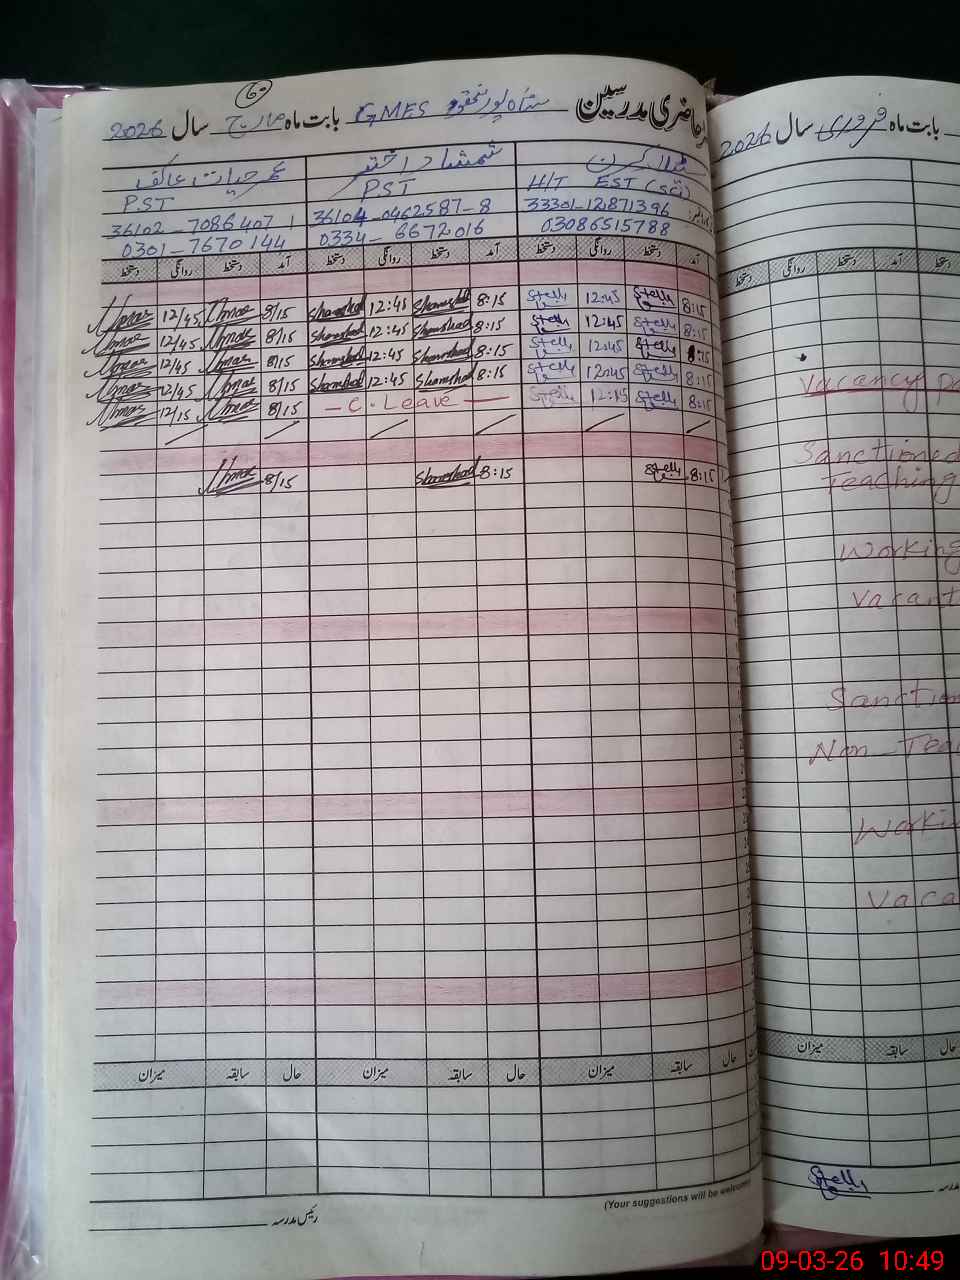 حاضری مدرسین GMES بابت ماہ مارچ سال 2026
60
عمر حیات عاکف
شمشاد اختر
کرن
P.ST
P.ST
H/T EST (Sci)
36102-7086407 1
36104-0462587-8
33301-1287139 6
0301-7670144
0334-6672016
03086515788
دستخط روانگی دستخط آمد دستخط روانگی دستخط آمد دستخط روانگی دستخط آمد
Umar 12/45 Umar 8/15 Shamshad 12:45 Shamshad 8:15 Stella 12:45 Stella 8:15
Umar 12/45 Umar 8/15 Shamshad 12:45 Shamshad 8:15 Stella 12:45 Stella 8:15
Umar 12/45 Umar 8/15 Shamshad 12:45 Shamshad 8:15 Stella 12:45 Stella 8:15
Umar 12/45 Umar 8/15 Shamshad 12:45 Shamshad 8:15 Stella 12:45 Stella 8:15
Umar 12/15 Umar 8/15 — C. Leave — Stella 12:15 Stella 8:15
Umar 8/15 Shamshad 8:15 Stella 8:15
میزان سابقہ حال میزان سابقہ حال میزان سابقہ حال
(Your suggestions will be welcome)
رئیس مدرسہ
بابت ماہ فروری سال 2026
دستخط روانگی دستخط آمد دستخط
Vacancy
Sanctioned
Teaching
Working
Vacant
Sanction
Non-Tea
Worki
Vaca
میزان سابقہ حال
Stella
مدرسہ
09-03-26 10:49